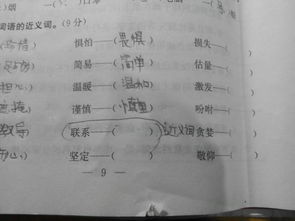 烟
词语的近义词。(9分)
惧怕——(畏惧) 损失——(
简易——(简单) 估量——(
担心) 温暖——(温和) 激发——(
谨慎——(慎重) 吩咐——(
教导) 联系——( ) 近义词 贪婪——(
坚定——( ) 敬仰——(
— 9 —